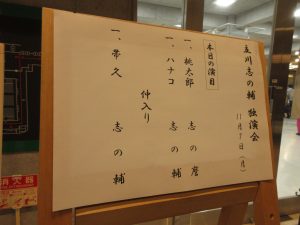 立川志の輔 独演会
11月9日(月)
本日の演目
一、桃太郎 志の麿
一、ハナコ 志の輔
仲入り
一、帯久 志の輔
消火器